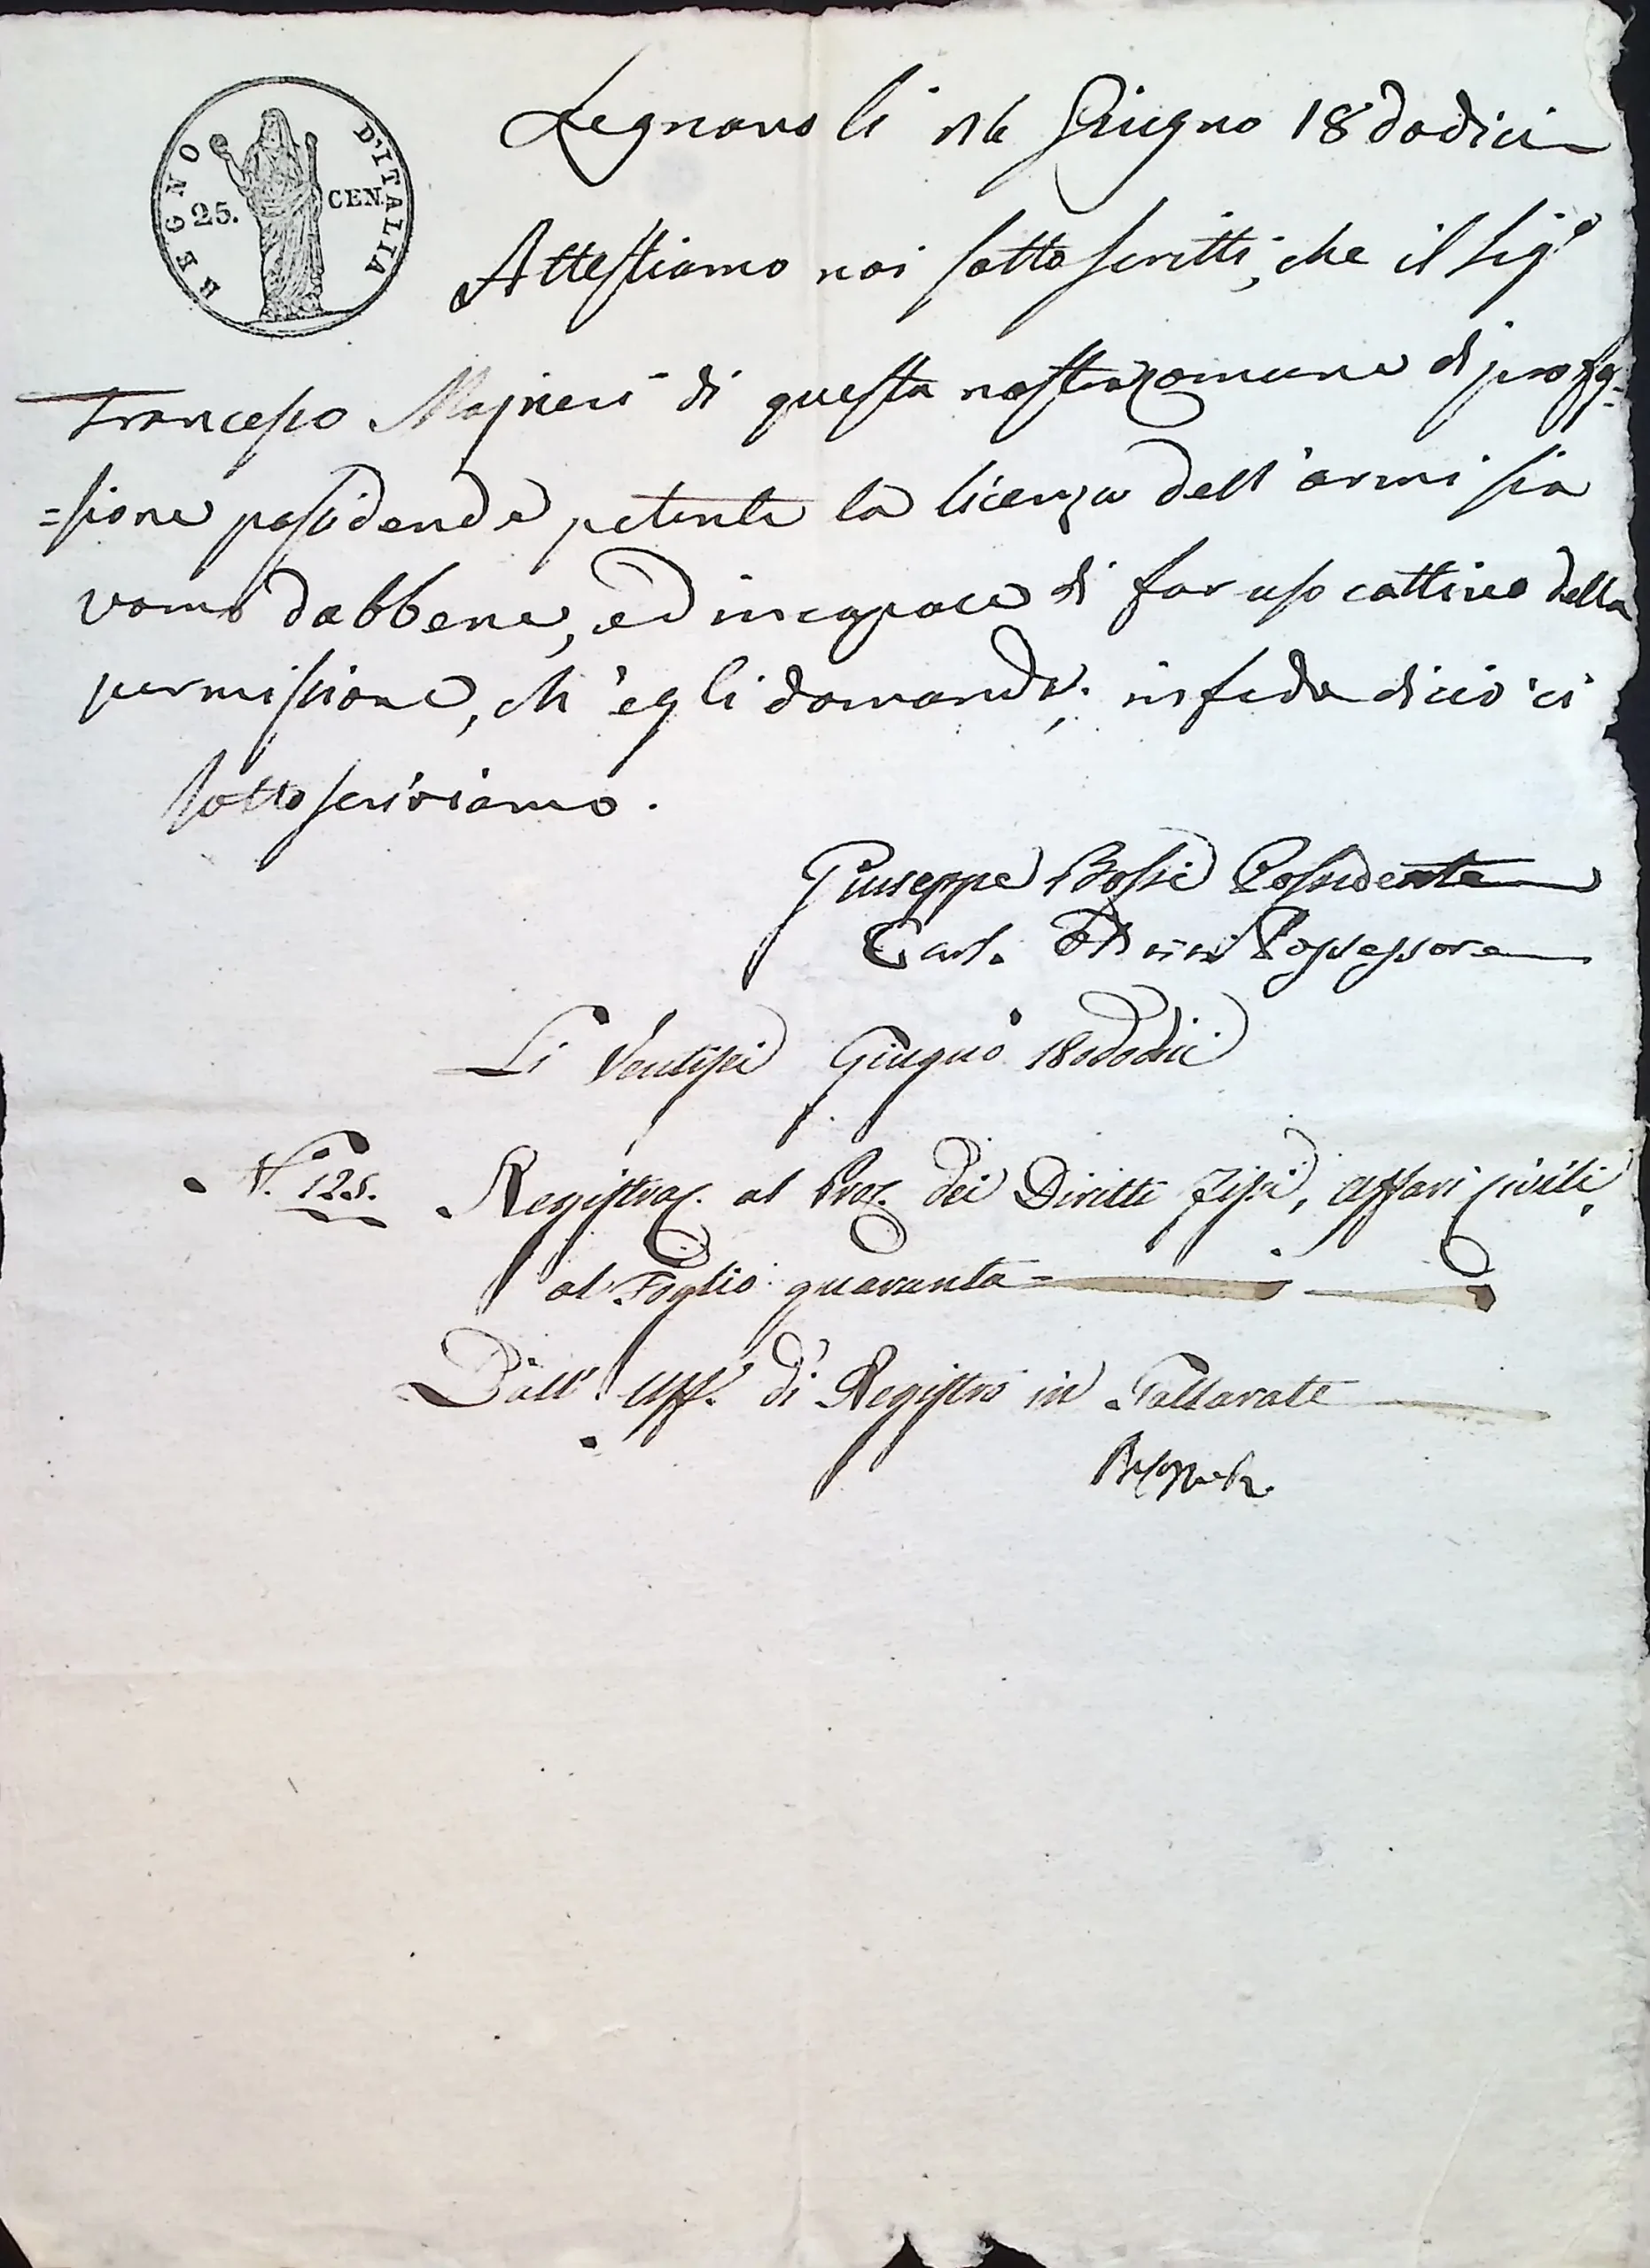 REGNO D'ITALIA
25. CEN.
Legnano li 16 Giugno 18dodici
Attestiamo noi sottoscritti, che il Sig.e
Francesco Majneri di questa nostra Comune di profes-
=sione possidende petente la licenza dell'armi sia
uomo dabbene, ed incapace di far uso cattivo della
permissione, ch'egli domanda; in fede di ciò ci
sottoscriviamo.
Giuseppe Bossi Possidente
Carl. Possessore
Li Ventisei Giugno 180dodici
N. 125. Registrac. al Proc. dei Diritti Fissi, affari civili,
al Foglio quaranta=
Dall' Uff. di Registro in Gallarate